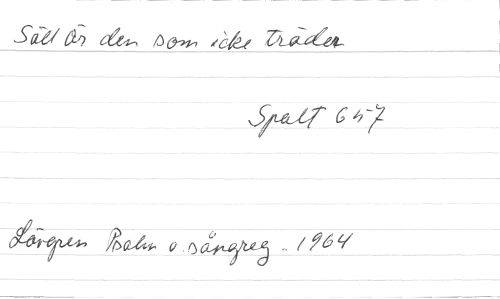 Säll är den som icke träder
Spalt 657
Lövgren Psalm o. sångreg. 1964